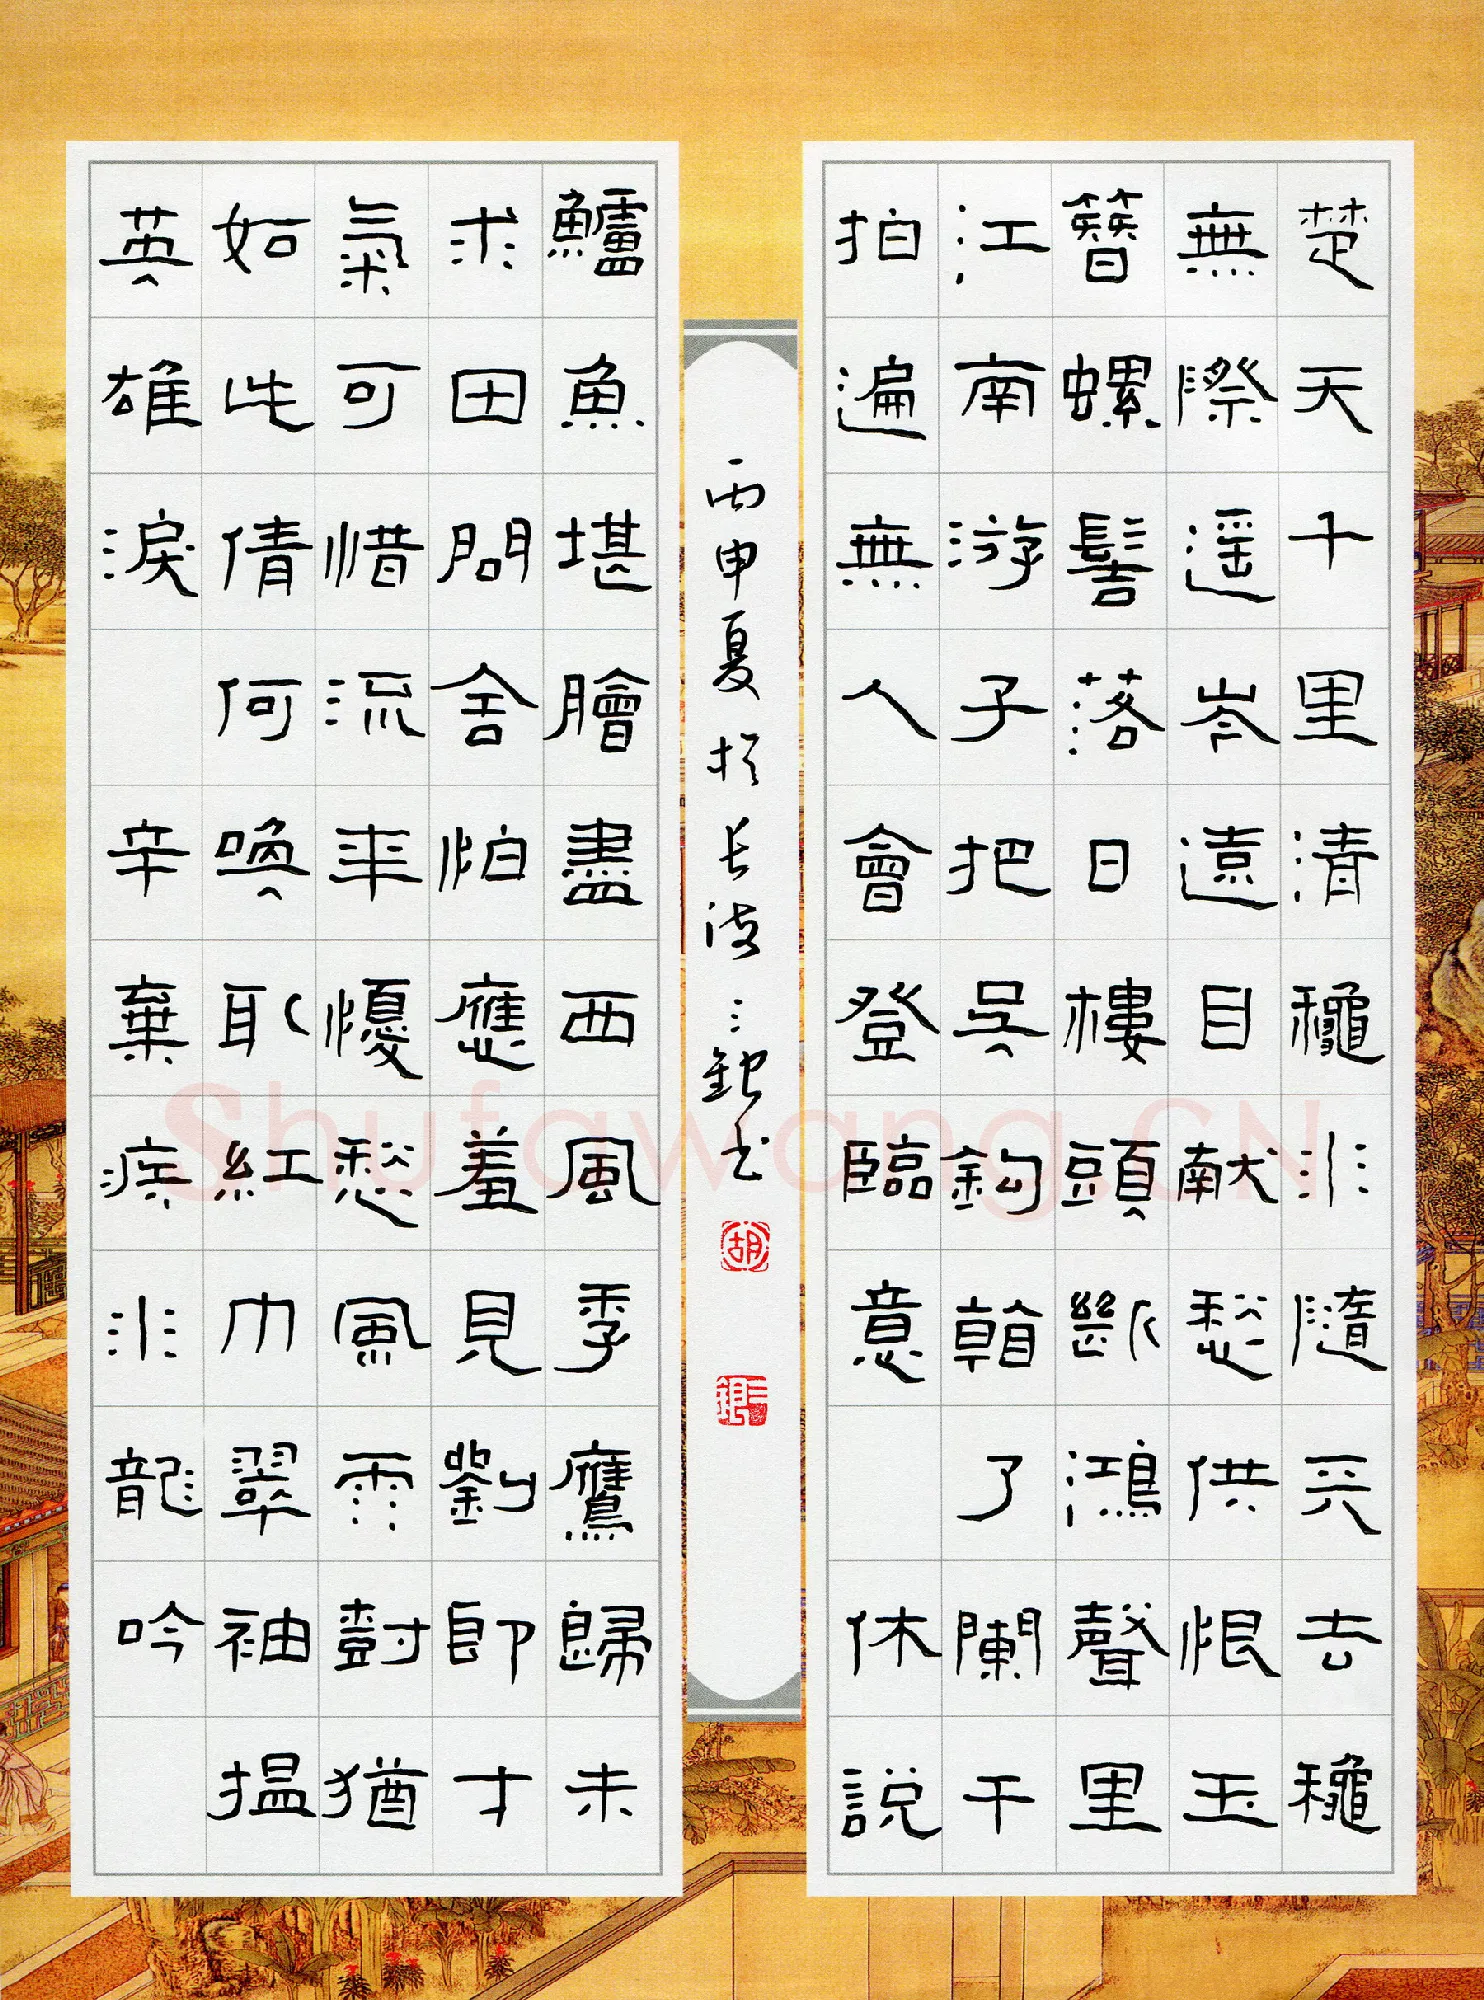 楚天千里清龝水隨天去龝
無際遥岑遠目献愁供恨玉
簪螺髻落日樓頭斷鴻聲里
江南游子把吳鈎看了闌干
拍遍無人會登臨意 休説
丙申夏於長沙三銀书
胡
三銀
鱸魚堪膾盡西風季鷹歸未
求田問舍怕應羞見劉郎才
氣可惜流年懮愁風雨樹猶
如此倩何喚取紅巾翠袖揾
英雄淚 辛棄疾水龍吟
Shufawang.CN